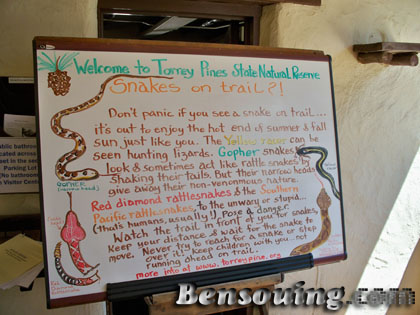 Welcome to Torrey Pines State Natural Reserve
Snakes on trail?!
Don't panic if you see a snake on trail...
it's out to enjoy the hot end of summer & fall
sun just like you. The Yellow racer can be
seen hunting lizards. Gopher snakes
look & sometimes act like rattle snakes by
shaking their tails. But their narrow heads
give away their non-venomous nature.
Red diamond rattlesnakes & the Southern
Pacific rattlesnakes to the unwary or stupid...
(that's humans, usually!) pose a danger.
Watch the trail in front of you for snakes,
keep your distance & wait for the snake to
move. Never try to reach for a snake or step
over it! Keep children with you, not
running ahead on trail.
more info at www.torreypine.org
GOPHER
(narrow head)
Public bathroom
located across
street in the
Parking Lot
(No bathroom
Visitor Center
Bensoving.com